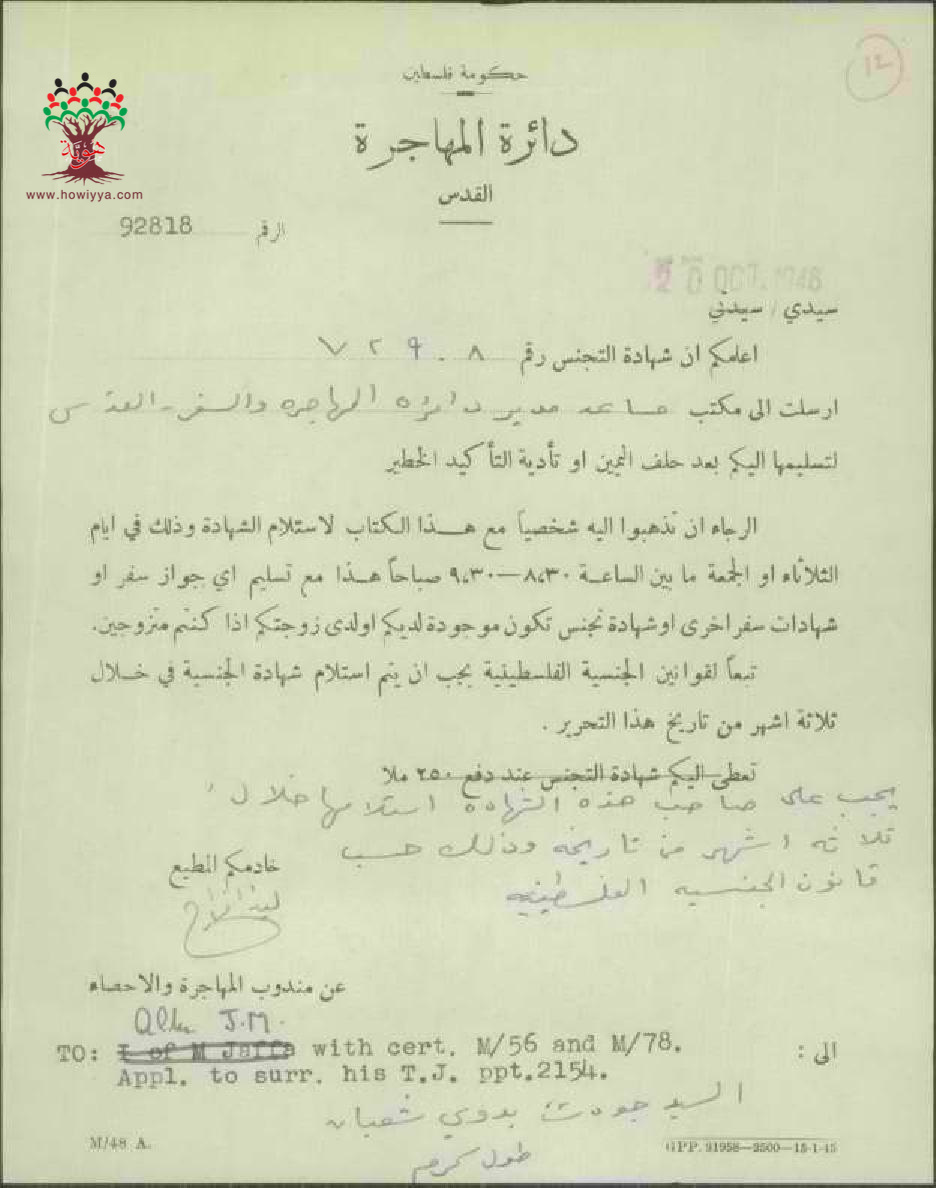 12
حكومة فلسطين
دائرة المهاجرة
القدس
هوية
www.howiyya.com
الرقم 92818
20 OCT. 1946
سيدي / سيدتي
اعلمكم ان شهادة التجنس رقم ٧٢٩٠٨
ارسلت الى مكتب مساعد مدير دائره المهاجره والسفر - القدس
لتسليمها اليكم بعد حلف اليمين او تأدية التأكيد الخطير
الرجاء ان تذهبوا اليه شخصياً مع هذا الكتاب لاستلام الشهادة وذلك في ايام
الثلاثاء او الجمعة ما بين الساعة ٨،٣٠—٩،٣٠ صباحاً هذا مع تسليم اي جواز سفر او
شهادات سفر اخرى او شهادة تجنس تكون موجودة لديكم او لدى زوجتكم اذا كنتم متزوجين.
تبعاً لقوانين الجنسية الفلسطينية يجب ان يتم استلام شهادة الجنسية في خلال
ثلاثة اشهر من تاريخ هذا التحرير .
تعطى اليكم شهادة التجنس عند دفع ٢٥٠ ملا
يجب على صاحب هذه الشهادة استلامها خلال
ثلاثه اشهر من تاريخه وذلك حسب
قانون الجنسيه الفلسطينيه
خادمكم المطيع
عن مندوب المهاجرة والاحصاء
J.M.
TO: I of M Jaffa with cert. M/56 and M/78. الى :
Appl. to surr. his T.J. ppt.2154.
السيد جودت بدوي شعبان
طولكرم
M/48 A.
GPP. 21958—2500—15-1-45